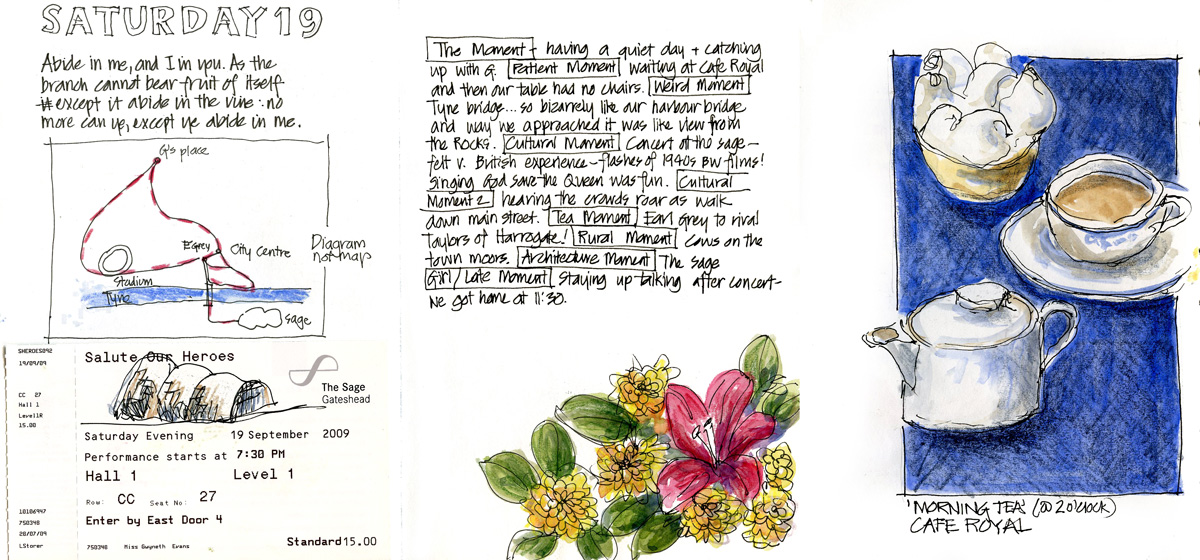 SATURDAY 19
Abide in me, and I in you. As the
branch cannot bear fruit of itself
except it abide in the vine: no
more can ye, except ye abide in me.
G's place
E.Grey
City Centre
Diagram
not map
Stadium
Tyne
Sage
SHEROES092
19/09/09
CC 27
Hall 1
Level1R
15.00
10106947
750348
20/07/09
LStorer
Salute Our Heroes
The Sage
Gateshead
Saturday Evening 19 September 2009
Performance starts at 7:30 PM
Hall 1 Level 1
Row: CC Seat No: 27
Enter by East Door 4
Standard 15.00
750348 Miss Gwyneth Evans
The Moment - having a quiet day + catching
up with G. Patient Moment waiting at Cafe Royal
and then our table had no chairs. Weird Moment
Tyne bridge... so bizarrely like our harbour bridge
and way we approached it was like view from
the Rocks. Cultural Moment Concert at the sage -
felt v. British experience - flashes of 1940s BW films!
Singing God save the Queen was fun. Cultural
Moment 2 hearing the crowds roar as walk
down main street. Tea Moment Earl Grey to rival
Taylors of Harrogate! Rural Moment Cows on the
town moors. Architecture Moment The Sage
Girl/Late Moment Staying up talking after concert-
we got home at 11:30.
'MORNING TEA' (@ 2 o'clock)
CAFE ROYAL